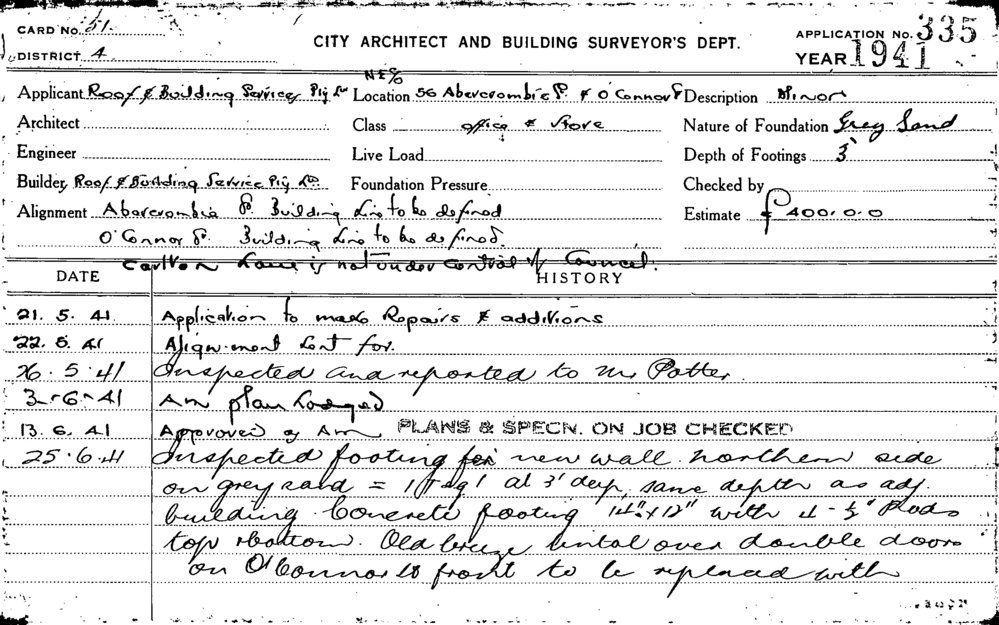 CARD No. 51.
DISTRICT 4
CITY ARCHITECT AND BUILDING SURVEYOR'S DEPT.
APPLICATION No. 335
YEAR 1941
Applicant Roof & Building Service Pty Ld
N E/C
Location 56 Abercrombie St. & O'Connor St
Description Minor
Architect
Class office & Store
Nature of Foundation Grey Sand
Engineer
Live Load
Depth of Footings 3'
Builder Roof & Building Service Pty Ld.
Foundation Pressure
Checked by
Alignment Abercrombie St. Building Line to be defined
Estimate £400.0.0
O'Connor St. Building Line to be defined.
Carlton Lane is not under control of Council.
DATE HISTORY
21. 5. 41. Application to make Repairs & additions
22. 5. 41 Alignment sent for.
26. 5. 41 Inspected and reported to Mr Potter.
3-6-41 Am plan Lodged
13. 6. 41 Approved as Am PLANS & SPECN. ON JOB CHECKED
25. 6. 41 Inspected footing for new wall northern side
on grey sand = at 3' deep, same depth as adj.
building. Concrete footing 14" x 12" with 4 - ½" Rods
top & bottom. Old breeze lintol over double doors
on O'Connor St front to be replaced with